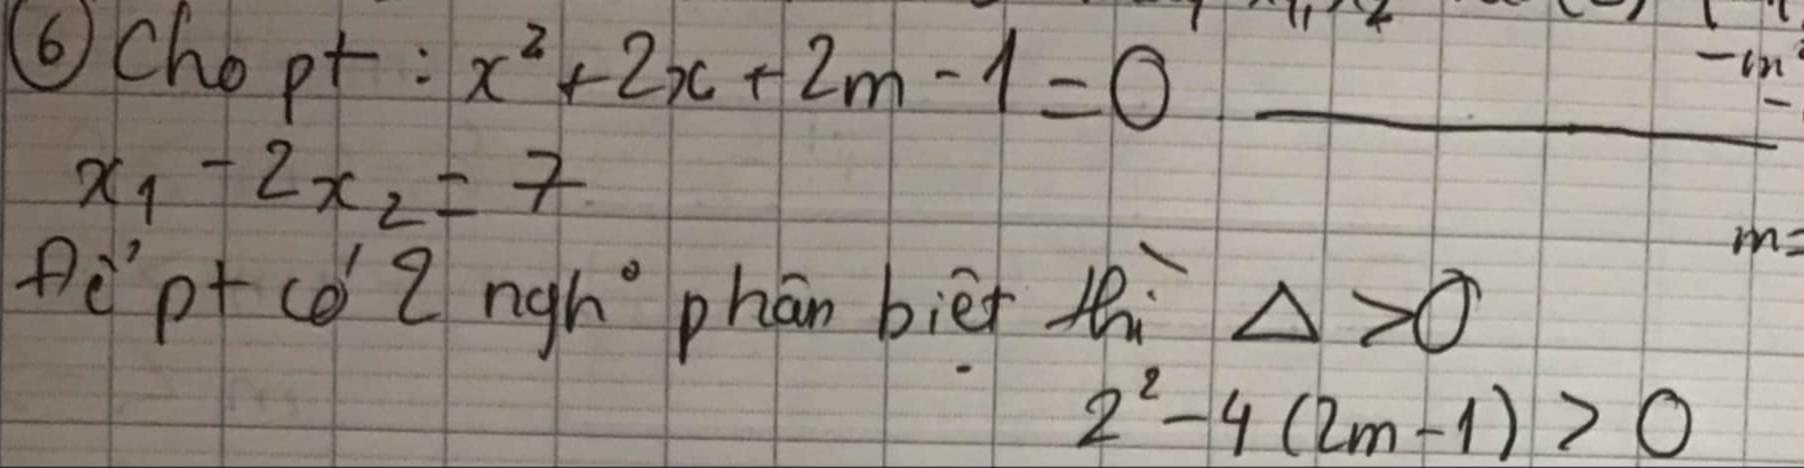 ⑥ Cho pt : x² + 2x + 2m - 1 = 0
x₁ - 2x₂ = 7
Để pt có 2 ngh° phân biệt thì Δ > 0
2² - 4 (2m - 1) > 0
-m²
m=